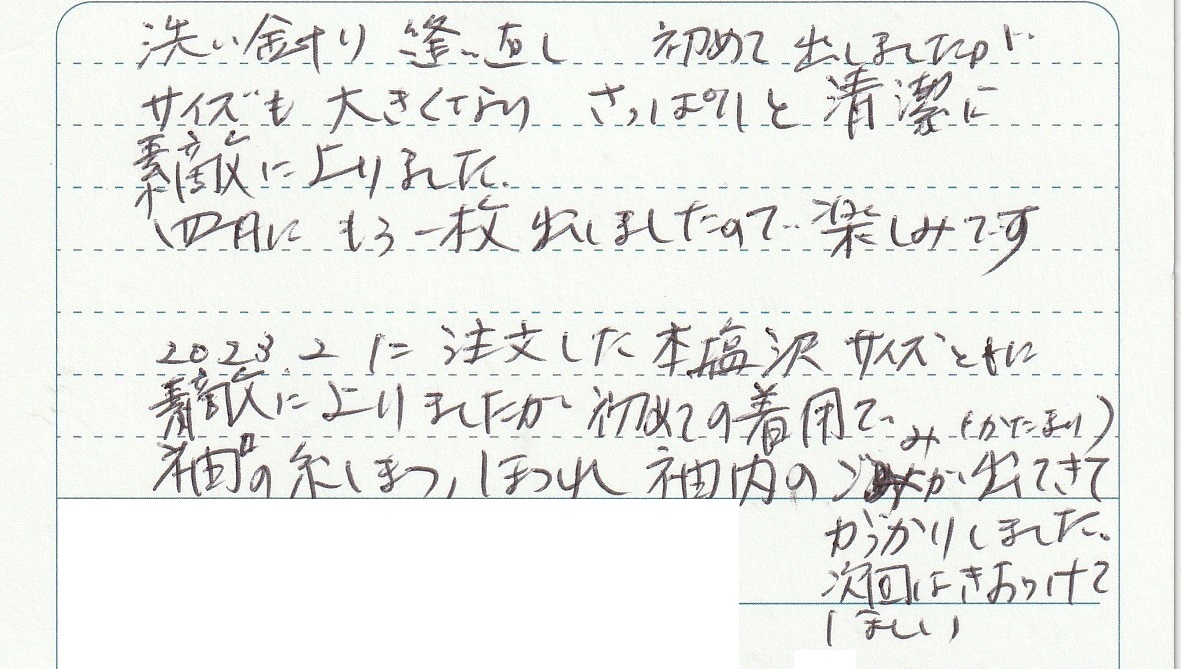 洗い針り 縫い直し 初めて出しましたが
サイズも大きくなり さっぱりと清潔に
素敵に上りました.
四月にもう一枚出しましたので楽しみです
2023.2に注文した本塩沢サイズともに
素敵に上りましたが初めての着用で
袖口の糸しまつ,ほつれ 袖内のゴミ(かたまり)が出てきて
がっかりしました。
次回はきおつけて
ほしい